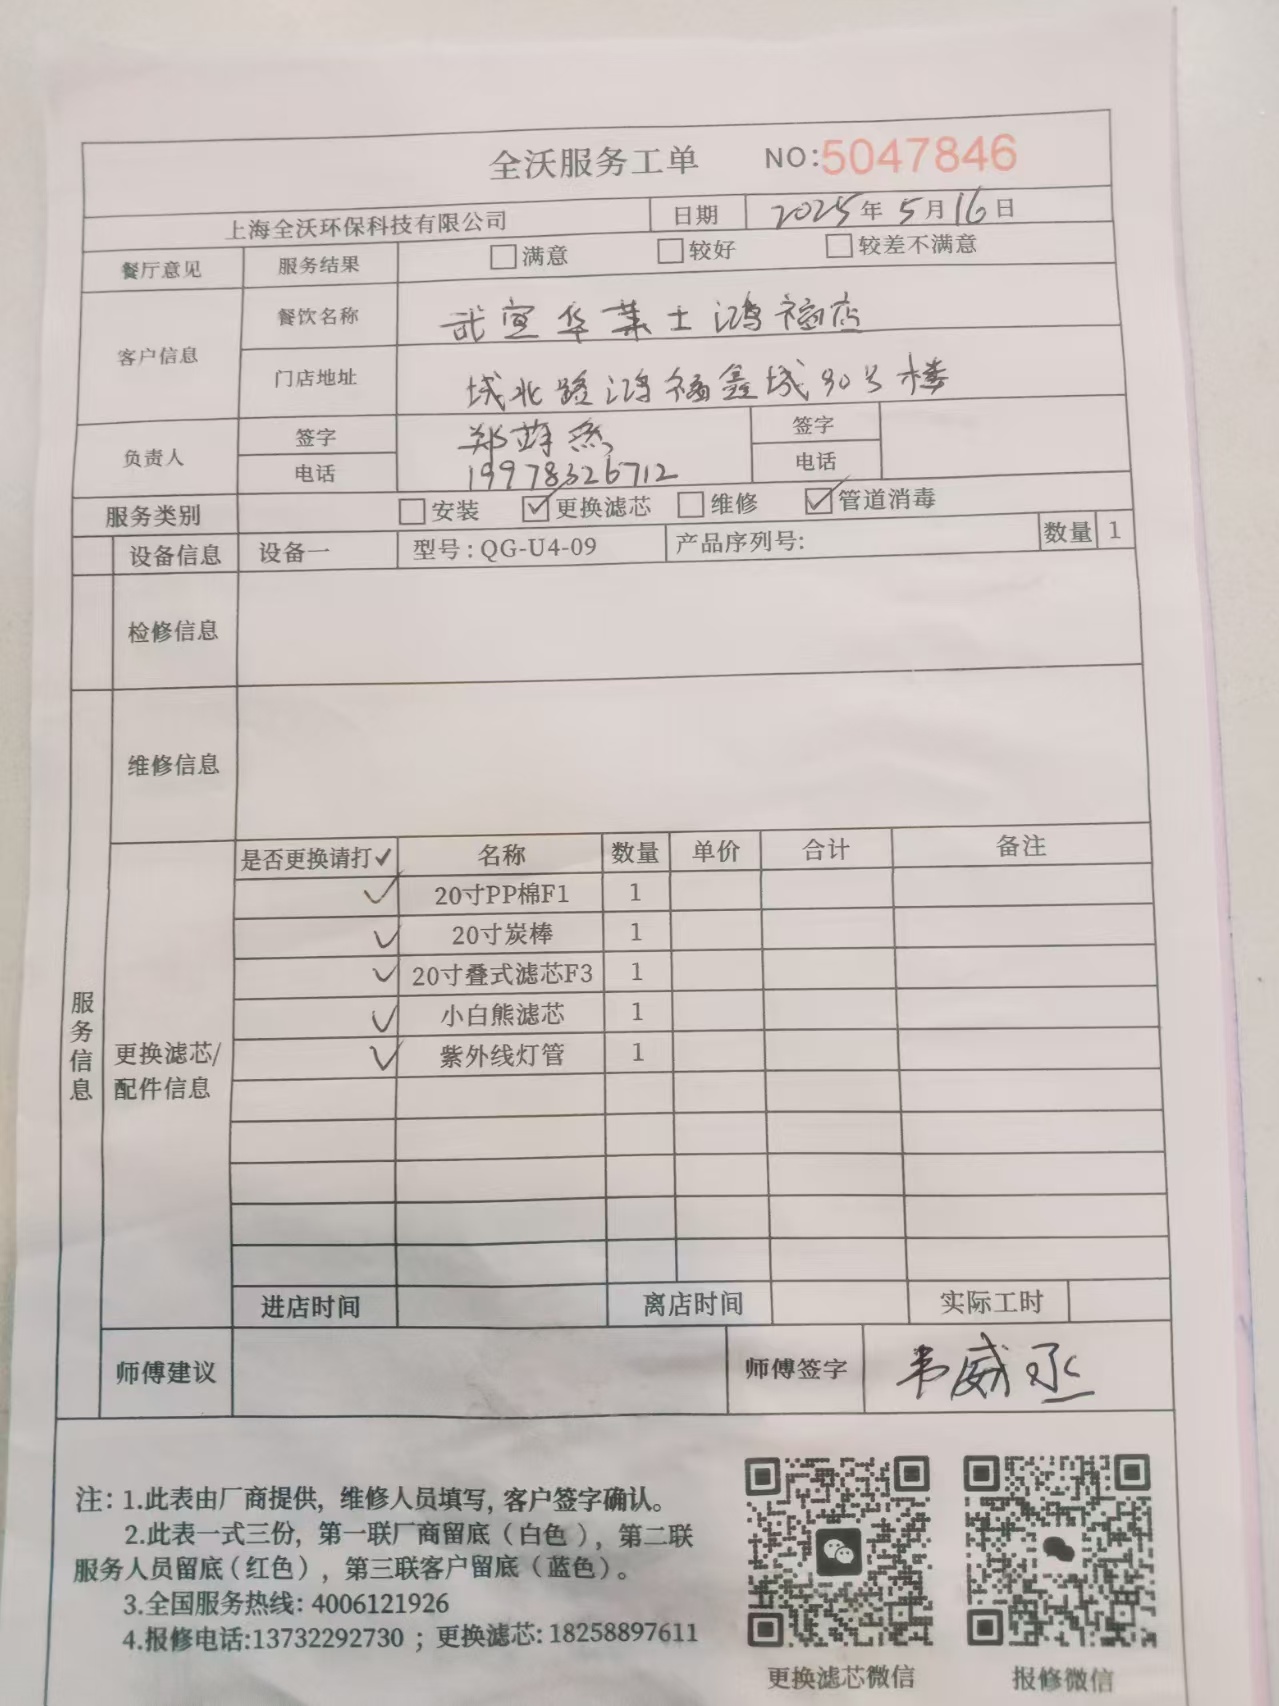 全沃服务工单 NO:5047846
上海全沃环保科技有限公司 日期 2025年5月16日
餐厅意见 服务结果 满意 较好 较差不满意
客户信息
餐饮名称 武宣华莱士鸿福店
门店地址 城北路鸿福鑫城90号楼
负责人
签字 郑 签字
电话 19978326712 电话
服务类别 安装 更换滤芯 维修 管道消毒
设备信息 设备一 型号:QG-U4-09 产品序列号: 数量 1
检修信息
维修信息
服务信息
更换滤芯/
配件信息
是否更换请打✓ 名称 数量 单价 合计 备注
✓ 20寸PP棉F1 1
✓ 20寸炭棒 1
✓ 20寸叠式滤芯F3 1
✓ 小白熊滤芯 1
✓ 紫外线灯管 1
进店时间 离店时间 实际工时
师傅建议 师傅签字 韦威丞
注：1.此表由厂商提供, 维修人员填写, 客户签字确认。
2.此表一式三份，第一联厂商留底（白色），第二联
服务人员留底（红色），第三联客户留底（蓝色）。
3.全国服务热线: 4006121926
4.报修电话:13732292730 ；更换滤芯: 18258897611
更换滤芯微信 报修微信